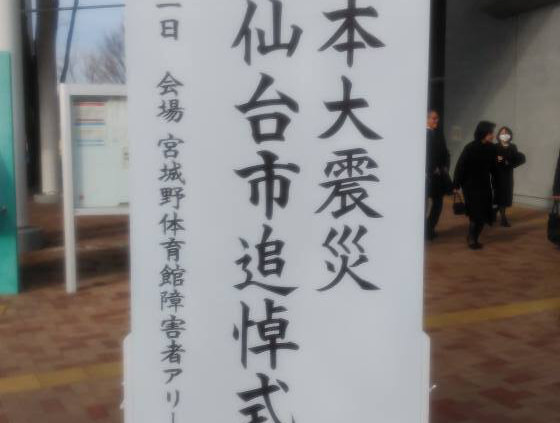 本大震災
仙台市追悼式
一日 会場 宮城野体育館障害者アリー